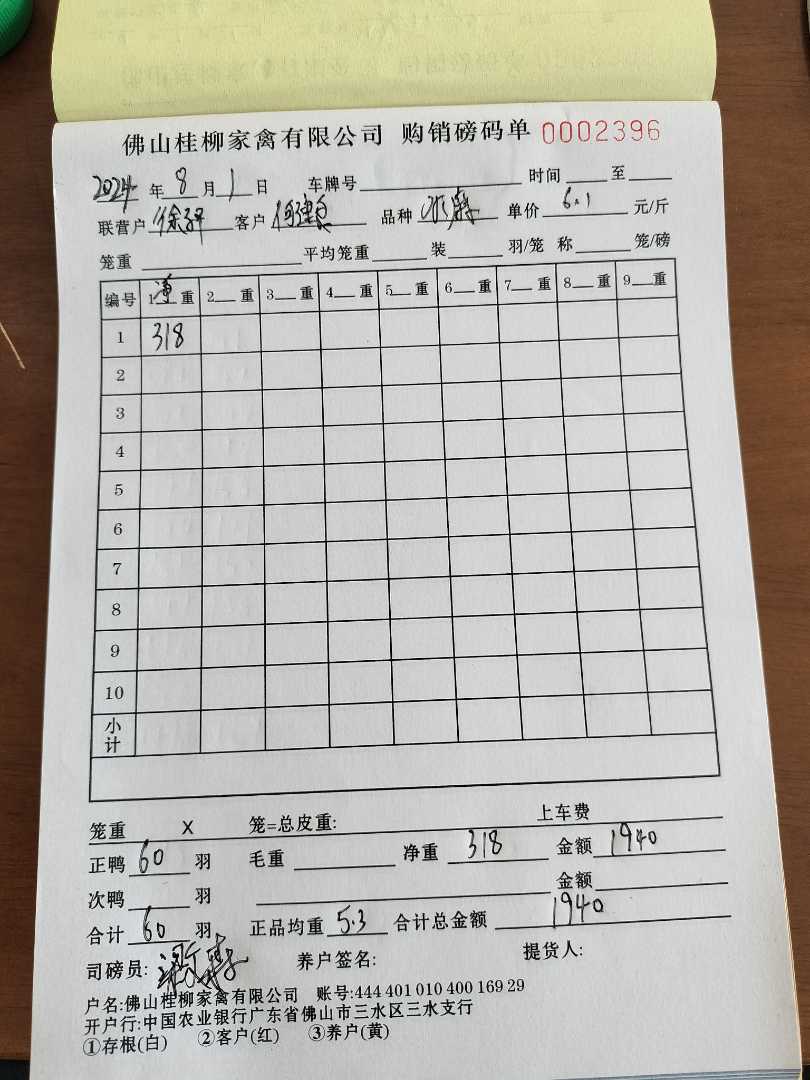 佛山桂柳家禽有限公司 购销磅码单 0002396
2024年8月1日 车牌号 时间 至
联营户 客户 品种 单价 6.1 元/斤
笼重 平均笼重 装 羽/笼 称 笼/磅
编号 1净重 2 重 3 重 4 重 5 重 6 重 7 重 8 重 9 重
1 318
2
3
4
5
6
7
8
9
10
小计
笼重 X 笼=总皮重: 上车费
正鸭 60 羽 毛重 净重 318 金额 1940
次鸭 羽 金额
合计 60 羽 正品均重 5.3 合计总金额 1940
司磅员: 养户签名: 提货人:
户名:佛山桂柳家禽有限公司 账号:444 401 010 400 169 29
开户行:中国农业银行广东省佛山市三水区三水支行
①存根(白) ②客户(红) ③养户(黄)